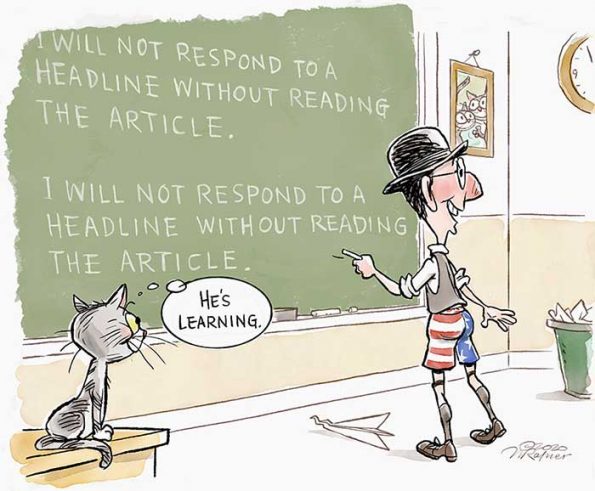 I WILL NOT RESPOND TO A
HEADLINE WITHOUT READING
THE ARTICLE.
I WILL NOT RESPOND TO A
HEADLINE WITHOUT READING
THE ARTICLE.
HE'S
LEARNING.
©2020
Ratner